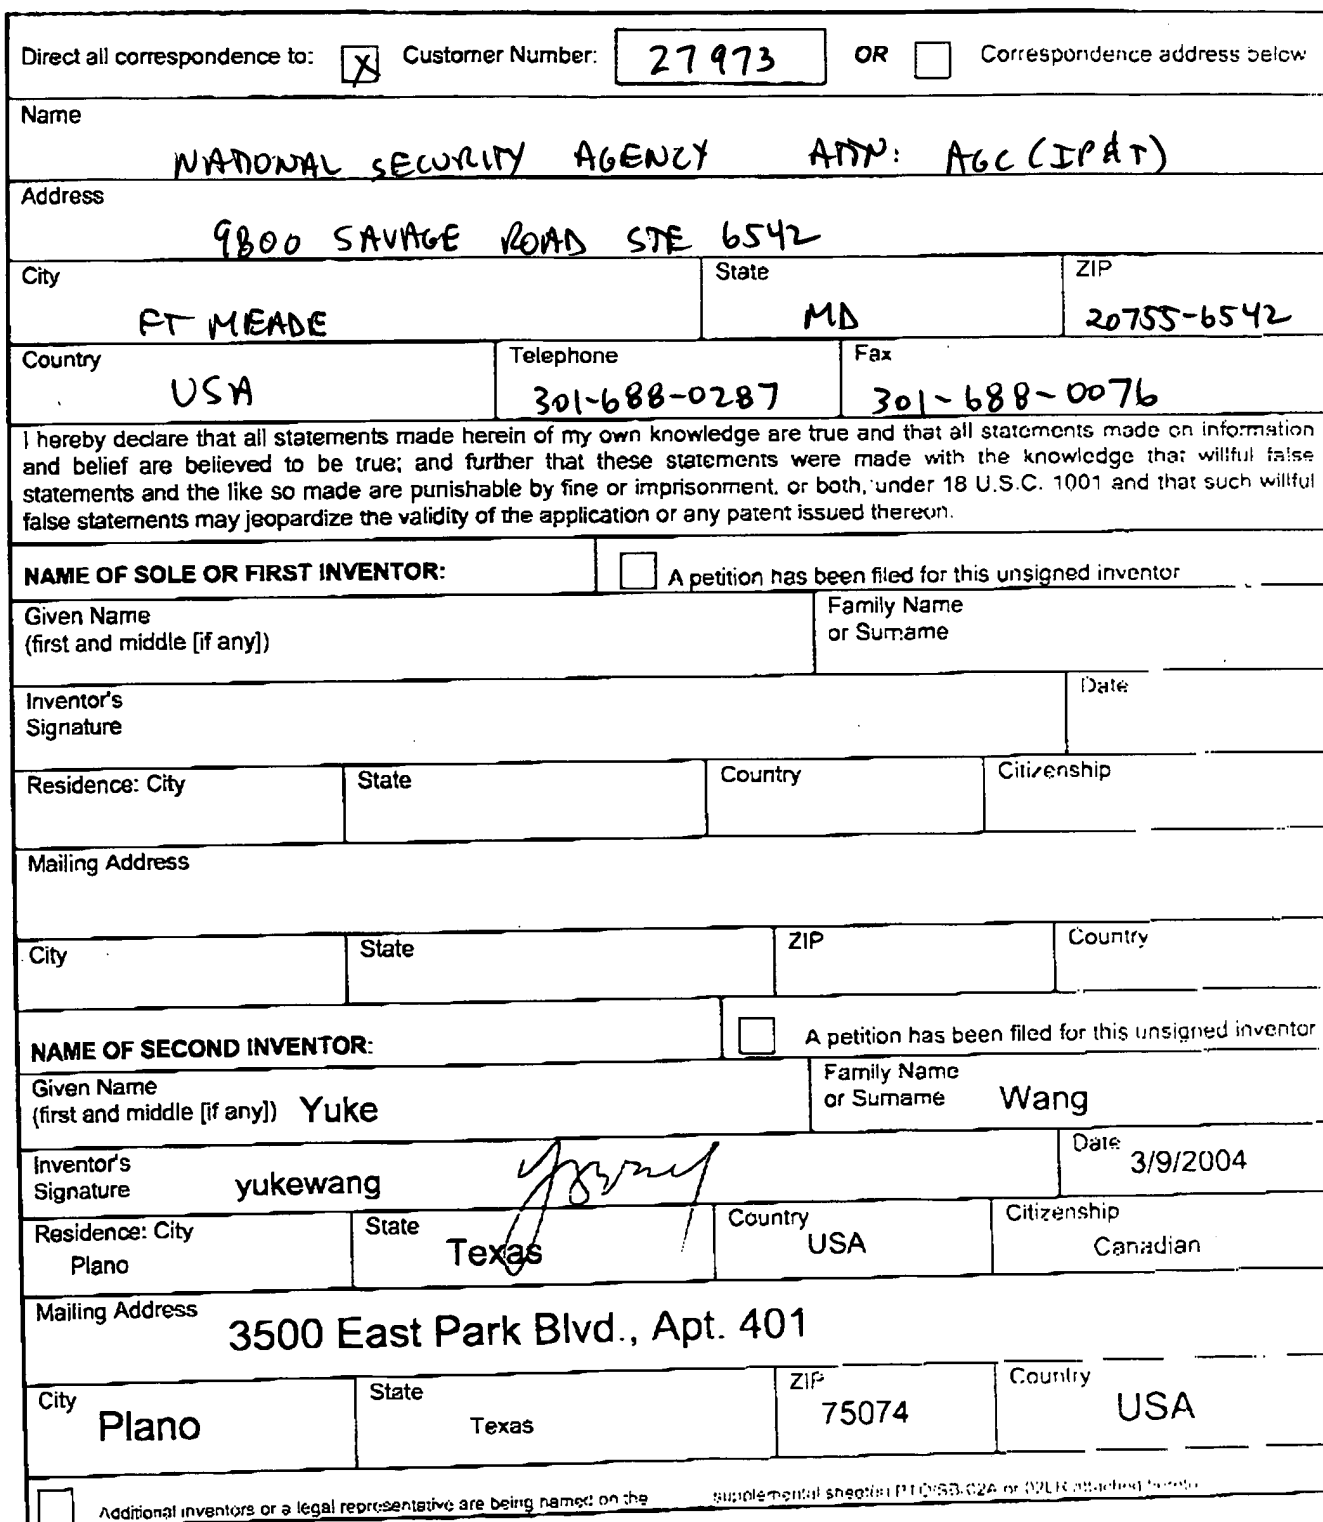 Direct all correspondence to: X Customer Number: 27973 OR Correspondence address below
Name
NATIONAL SECURITY AGENCY ATTN: AGC (IP&T)
Address
9800 SAVAGE ROAD STE 6542
City State ZIP
FT MEADE MD 20755-6542
Country Telephone Fax
USA 301-688-0287 301-688-0076
I hereby declare that all statements made herein of my own knowledge are true and that all statements made on information
and belief are believed to be true; and further that these statements were made with the knowledge that willful false
statements and the like so made are punishable by fine or imprisonment, or both, under 18 U.S.C. 1001 and that such willful
false statements may jeopardize the validity of the application or any patent issued thereon.
NAME OF SOLE OR FIRST INVENTOR: A petition has been filed for this unsigned inventor
Given Name Family Name
(first and middle [if any]) or Surname
Inventor's Date
Signature
Residence: City State Country Citizenship
Mailing Address
City State ZIP Country
NAME OF SECOND INVENTOR: A petition has been filed for this unsigned inventor
Given Name Family Name
(first and middle [if any]) Yuke or Surname Wang
Inventor's Date 3/9/2004
Signature yukewang
Residence: City State Country Citizenship
Plano Texas USA Canadian
Mailing Address 3500 East Park Blvd., Apt. 401
City State ZIP Country
Plano Texas 75074 USA
Additional inventors or a legal representative are being named on the supplemental sheet(s) PTO/SB/02A or 02LR attached hereto